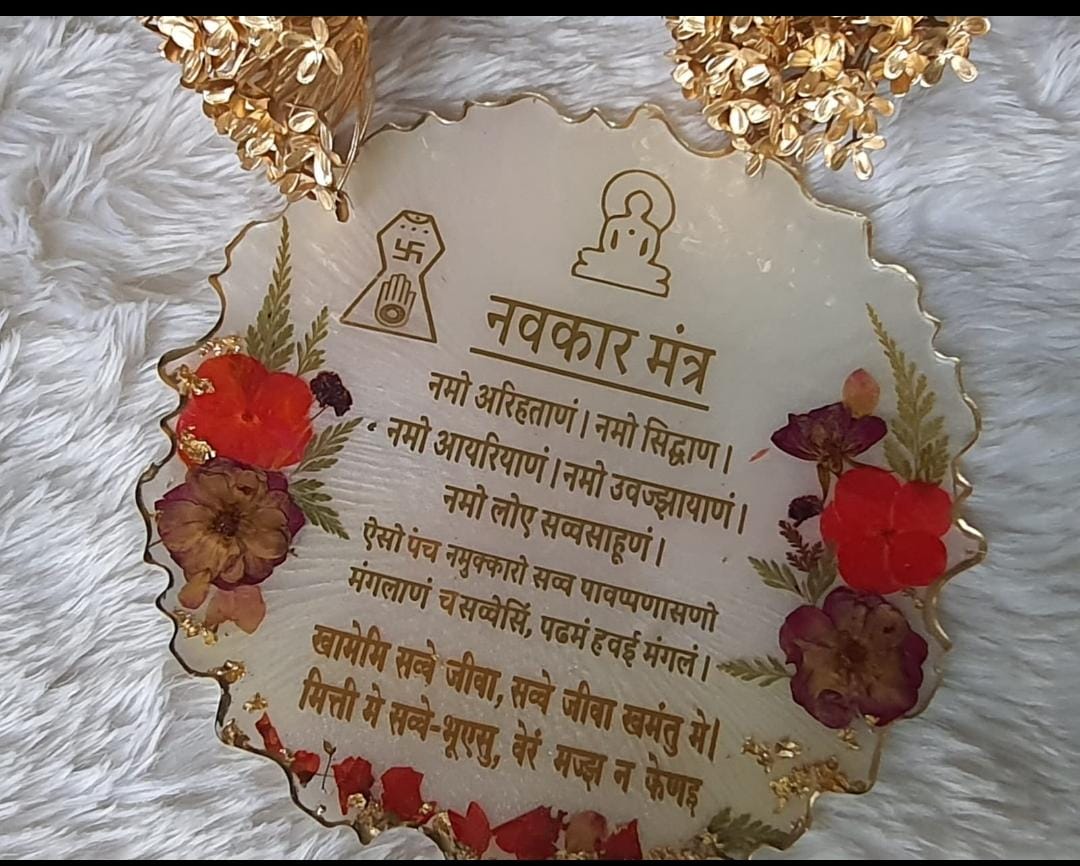 नवकार मंत्र
नमो अरिहताणं। नमो सिद्धाण।
नमो आयरियाणं। नमो उवज्झायाणं।
नमो लोए सव्वसाहूणं।
ऐसो पंच नमुक्कारो सव्व पावप्पणासणो
मंगलाणं च सव्वेसिं, पढमं हवई मंगलं।
खामेमि सव्वे जीवा, सव्वे जीवा खमंतु मे।
मित्ती मे सव्वे-भूएसु, वेरं मज्झ न केणइ